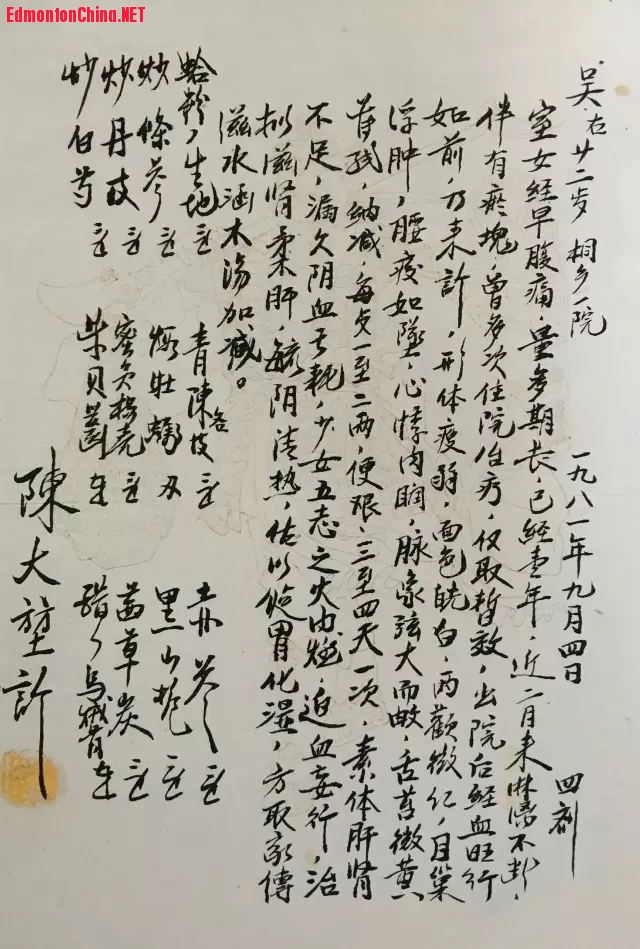 EdmontonChina.NET
吴右 廿二岁 桐乡一院 一九八一年九月四日 四剂
室女经早腹痛,量多期长,已经壹年,近二月来淋漓不断,
伴有瘀块,曾多次住院治疗,仅取暂效,出院后经血旺行
如前,乃来诊,形体疲弱,面色㿠白,两颧微红,目窠
浮肿,腰痠如坠,心悸肉瞤,脉象弦大而,舌苔微黄
,纳减,每贞一至二两,便艰,三至四天一次,素体肝肾
不足,漏久阴血亏耗,少女五志之火内燃,迫血妄行,治
拟滋肾柔肝,毓阴清热,佐以和胃化湿,方取家传
滋水涵木汤加减。
蛤粉 生地 青陈各 赤芩
炒条参 煅牡蛎 黑山栀
炒丹皮 蜜炙椿壳 茜草炭
炒白芍 紫贝齿 乌贼骨
陈大堃诊